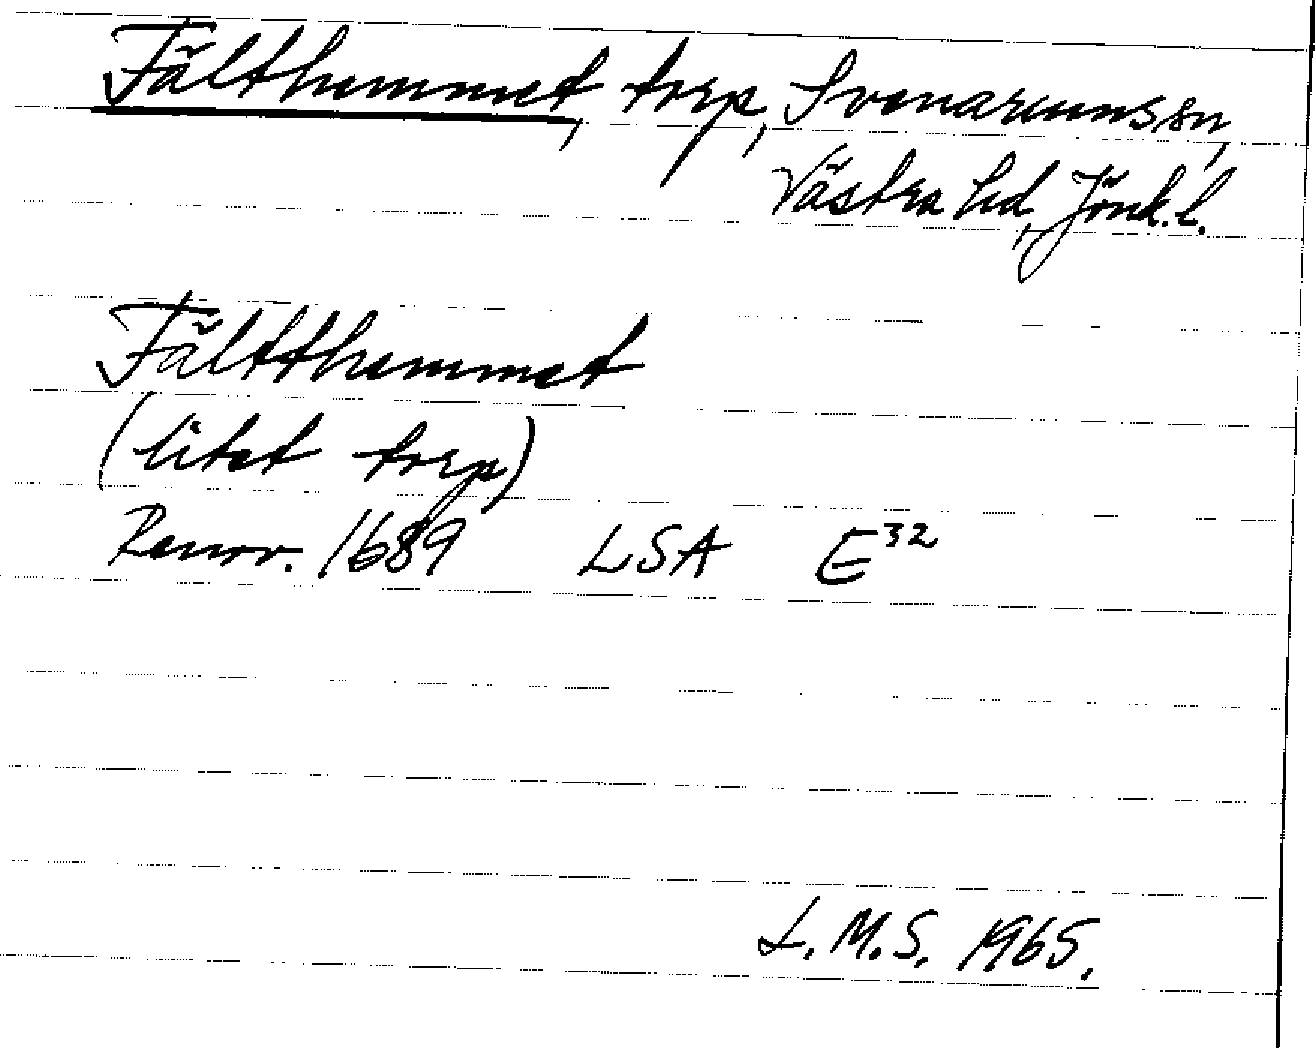 Fälthemmet, torp, Svenarumssn,
Västra hd, Jönk.l.
Fältthemmet
(litet torp)
Renov. 1689 LSA E32
L.M.S. 1965.